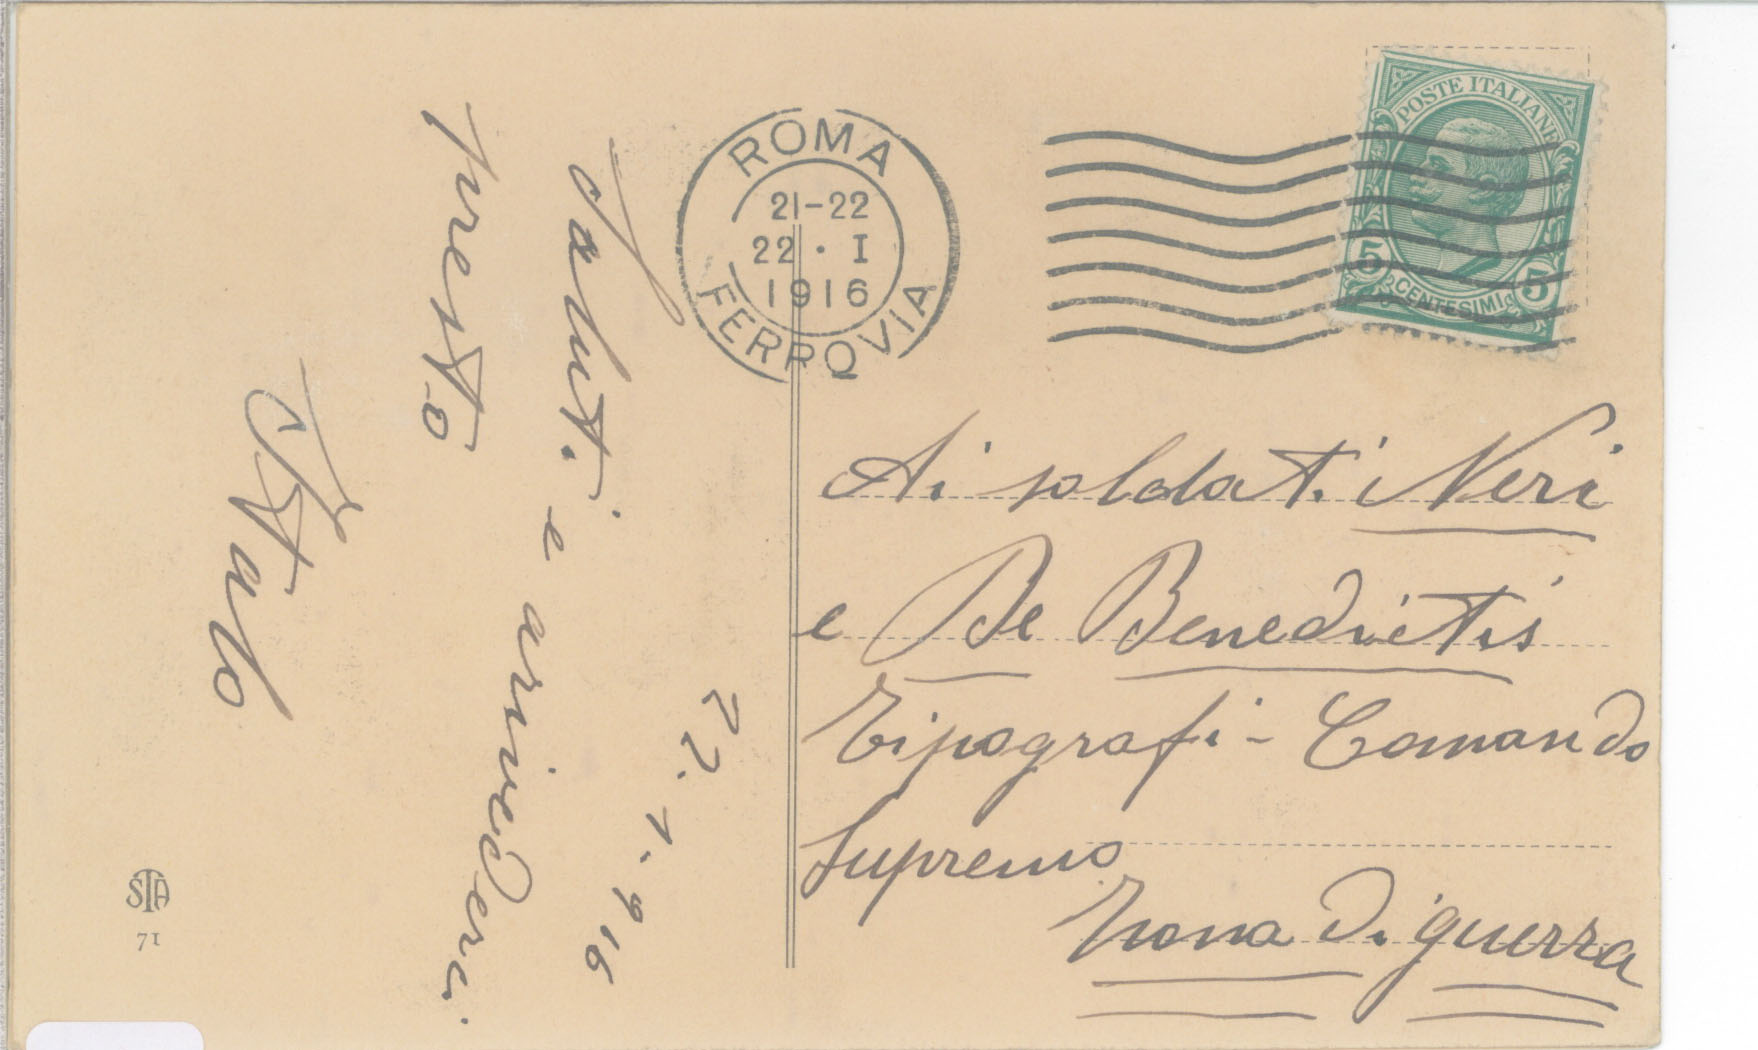 22.1.916
Saluti e arrivederci
presto
Italo
ROMA
21-22
22 · I
1916
FERROVIA
POSTE ITALIANE
5 CENTESIMI 5
Ai soldati Neri
e De Benedictis
Tipografi - Comando
Supremo
Zona di guerra
STA
71